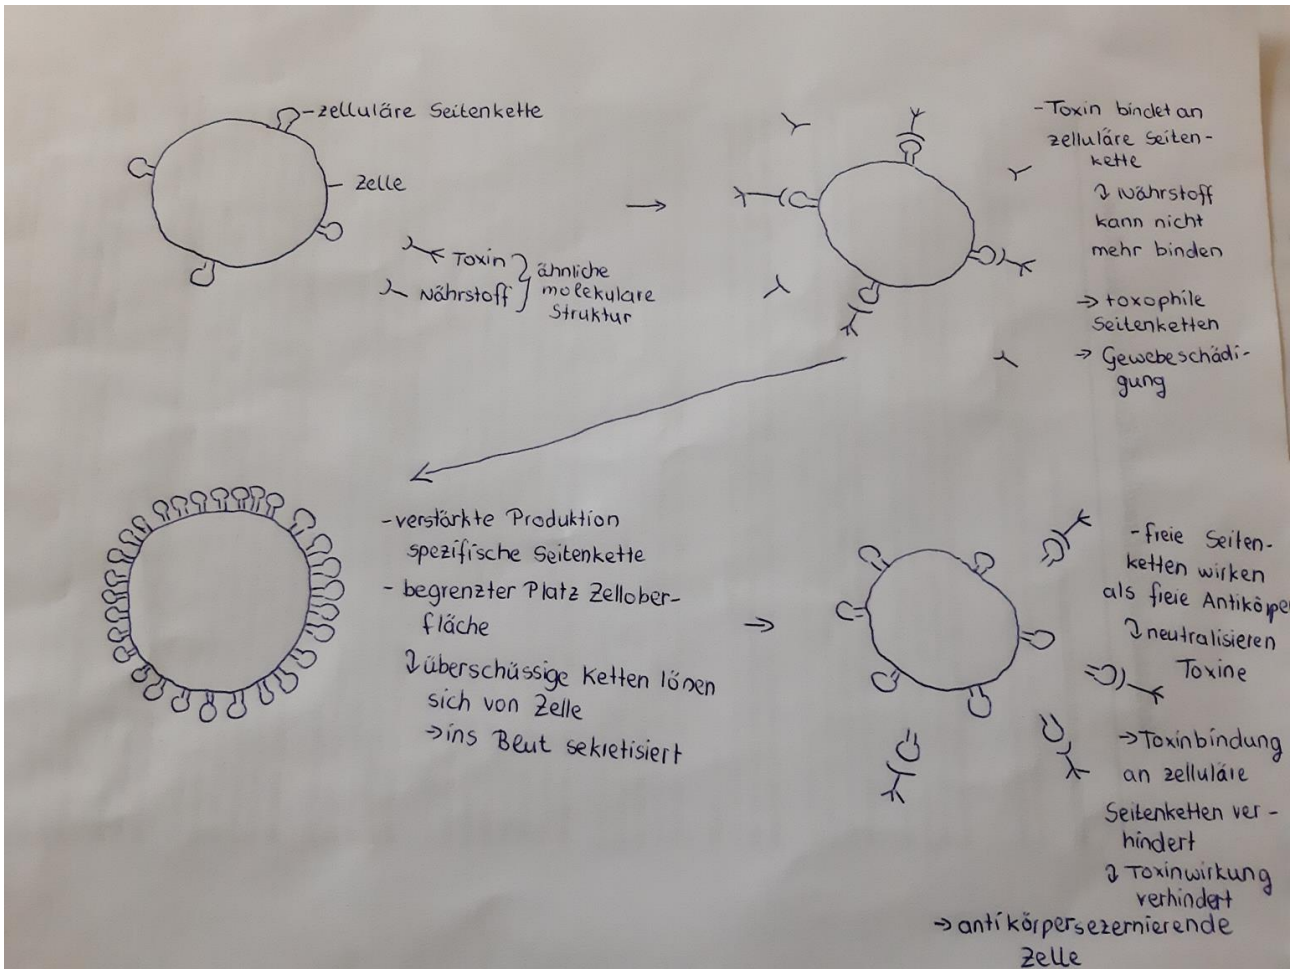 -zelluläre Seitenkette
Zelle
Toxin
Nährstoff
ähnliche
molekulare
Struktur
→
-Toxin bindet an
zelluläre Seiten-
kette
↳ Nährstoff
kann nicht
mehr binden
→ toxophile
Seitenketten
→ Gewebeschädi-
gung
-verstärkte Produktion
spezifische Seitenkette
- begrenzter Platz Zellober-
fläche
↳ überschüssige Ketten lösen
sich von Zelle
→ ins Blut sekretisiert
→
-freie Seiten-
ketten wirken
als freie Antikörpe
↳ neutralisieren
Toxine
→ Toxinbindung
an zelluläre
Seitenketten ver-
hindert
↳ Toxinwirkung
verhindert
→ antikörpersezernierende
Zelle